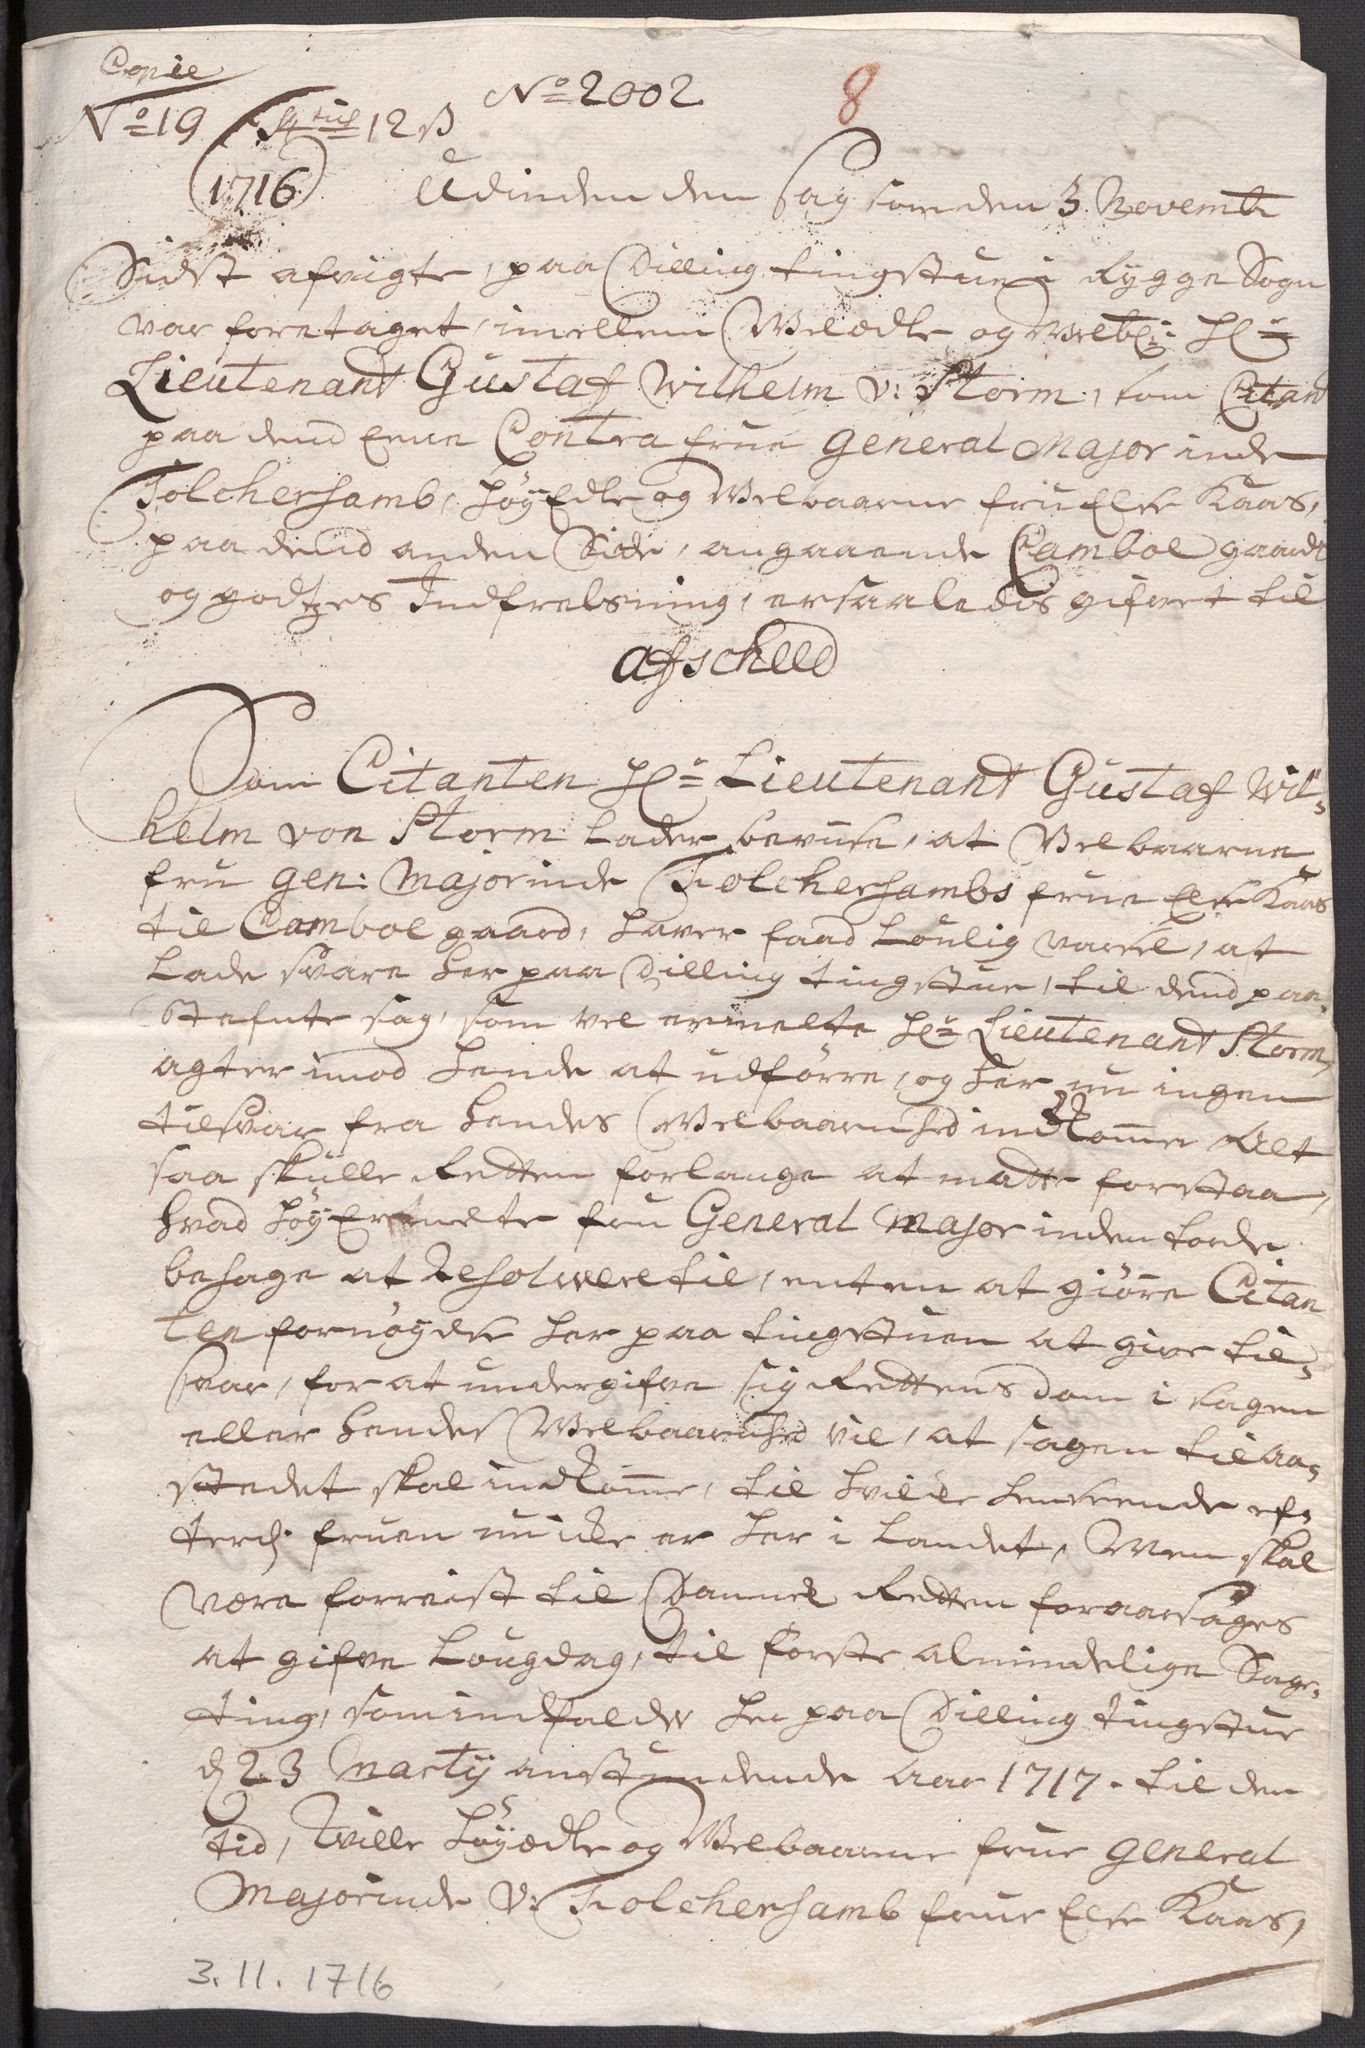 Copie
No 19 12 ß No 2002 8
1716 Udinden den Sag som den 3 Novemb
Sidst afvigte, paa Dilling tingstue i Rygge Sogn
var foretaget, imellem Welædle og Welb: Hr
Lieutenant Gustaf Wilhelm V: Storm, som Citant
paa dend Eene Contra frue General Major inde
Tolchersamb, HøyEdle og Welbaarne frue Else Kaas,
paa dend anden Side, angaaende Camboe gaards
og godtzes Indfrelsning, er saaledis gifvet til
afscheed
Som Citanten Hr Lieutenant Gustaf Wil-
helm von Storm Lader bevise, at Velbaarne
fru Gen: Majorinde Tolchersambs frue Else Kaas
til Camboe gaard, haver faad Loulig varsel, at
Lade svare her paa Dilling tingstue, til dend paa
stefnte sag, som vel ermelte Hr Lieutenant Storm,
agter imod hende at udførre, og her nu ingen
tilsvar fra hendes Welbaarnhed indkommer Alt
saa skulle Retten forlange at maatte forstaa,
hvad høyErmelte fru General Major inden torde
behage at Resolvere til, enten at giøre Citan
ten fornøyelse her paa tingstuen at give til-
svar, for at undergifve sig Rettens dom i sagen
eller hendes Welbaarnhed vil, at sagen til Aa-
stedet skal indkomme, til hvilke henseende ef-
terdj fruen nu icke er her i Landet, Men skal
være forreist til Danmrk Retten foraarsages
at gifve Lougdag, til første almindelige Sage-
ting, som indfalder her paa Dilling tingstue
d 23 Marty anstundende Aar 1717. til den
tid, Wille Høyædle og Welbaarne frue General
Majorinde V: Tolchersamb frue Else Kaas,
3.11.1716